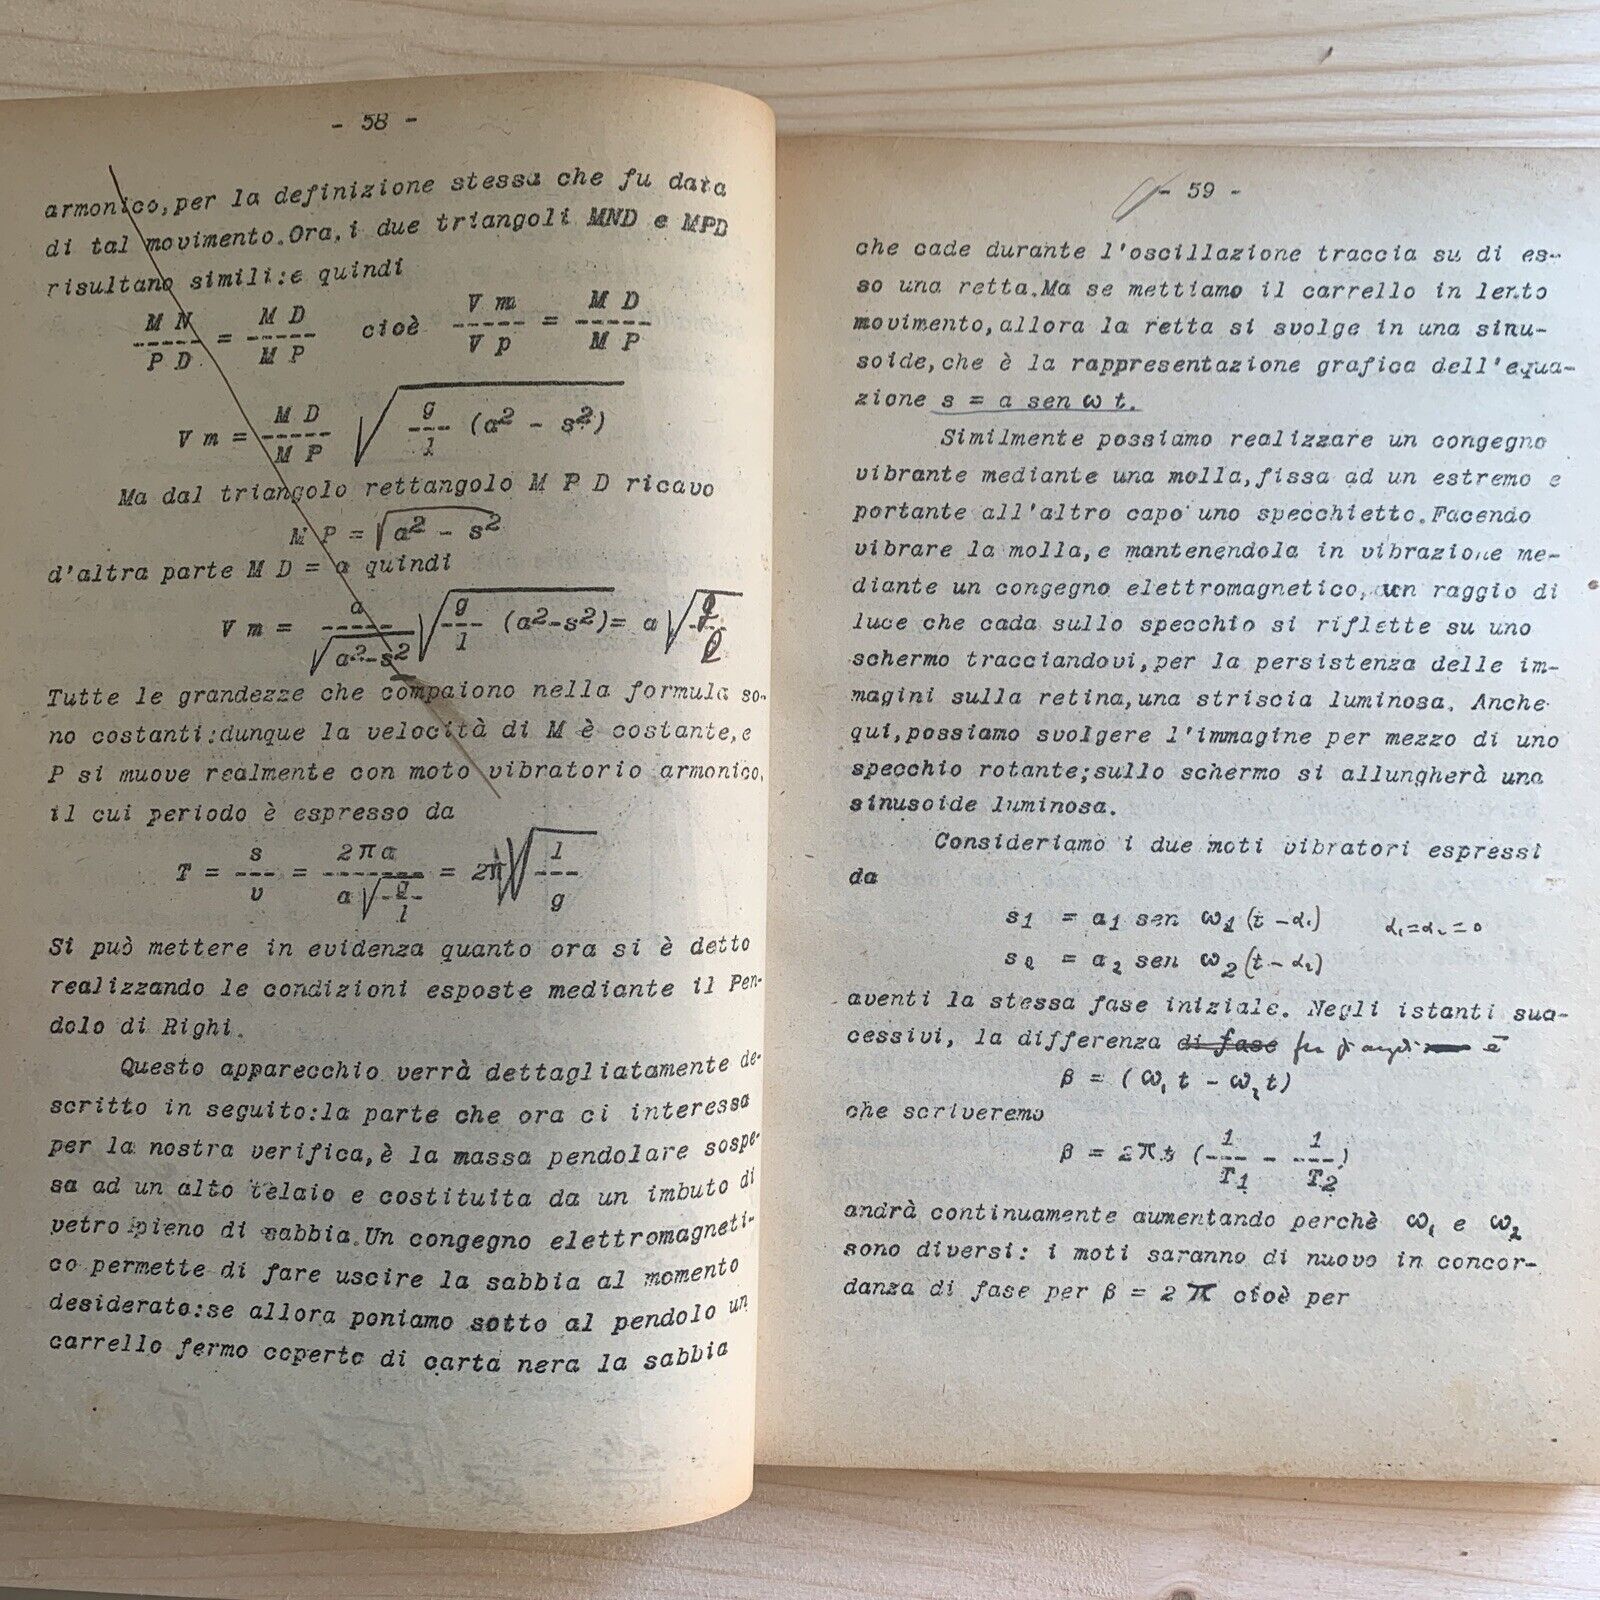 - 58 -
armonico,per la definizione stessa che fu data
di tal movimento.Ora,i due triangoli MND e MPD
risultano simili:e quindi
M N / P D = M D / M P cioè V m / V p = M D / M P
V m = M D / M P √ g / l (a2 - s2)
Ma dal triangolo rettangolo M P D ricavo
M P = √ a2 - s2
d'altra parte M D = a quindi
V m = a / √ a2-s2 √ g / l (a2-s2) = a √ g / l
Tutte le grandezze che compaiono nella formula so-
no costanti:dunque la velocità di M è costante,e
P si muove realmente con moto vibratorio armonico,
il cui periodo è espresso da
T = s / v = 2πa / a √ g / l = 2π √ l / g
Si può mettere in evidenza quanto ora si è detto
realizzando le condizioni esposte mediante il Pen-
dolo di Righi.
Questo apparecchio verrà dettagliatamente de-
scritto in seguito:la parte che ora ci interessa
per la nostra verifica,è la massa pendolare sospe-
sa ad un alto telaio e costituita da un imbuto di
vetro pieno di sabbia.Un congegno elettromagneti-
co permette di fare uscire la sabbia al momento
desiderato:se allora poniamo sotto al pendolo un
carrello fermo coperto di carta nera la sabbia
- 59 -
che cade durante l'oscillazione traccia su di es-
so una retta.Ma se mettiamo il carrello in lento
movimento,allora la retta si svolge in una sinu-
soide,che è la rappresentazione grafica dell'equa-
zione s = a sen ω t.
Similmente possiamo realizzare un congegno
vibrante mediante una molla,fissa ad un estremo e
portante all'altro capo uno specchietto.Facendo
vibrare la molla,e mantenendola in vibrazione me-
diante un congegno elettromagnetico, un raggio di
luce che cada sullo specchio si riflette su uno
schermo tracciandovi,per la persistenza delle im-
magini sulla retina,una striscia luminosa. Anche
qui,possiamo svolgere l'immagine per mezzo di uno
specchio rotante;sullo schermo si allungherà una
sinusoide luminosa.
Consideriamo i due moti vibratori espressi
da
s1 = a1 sen ω1 (t - α1) α1 = α2 = 0
s2 = a2 sen ω2 (t - α2)
aventi la stessa fase iniziale. Negli istanti suc-
cessivi, la differenza di fase è
β = (ω1 t - ω2 t)
che scriveremo
β = 2π t (1 / T1 - 1 / T2)
andrà continuamente aumentando perchè ω1 e ω2
sono diversi: i moti saranno di nuovo in concor-
danza di fase per β = 2 π cioè per